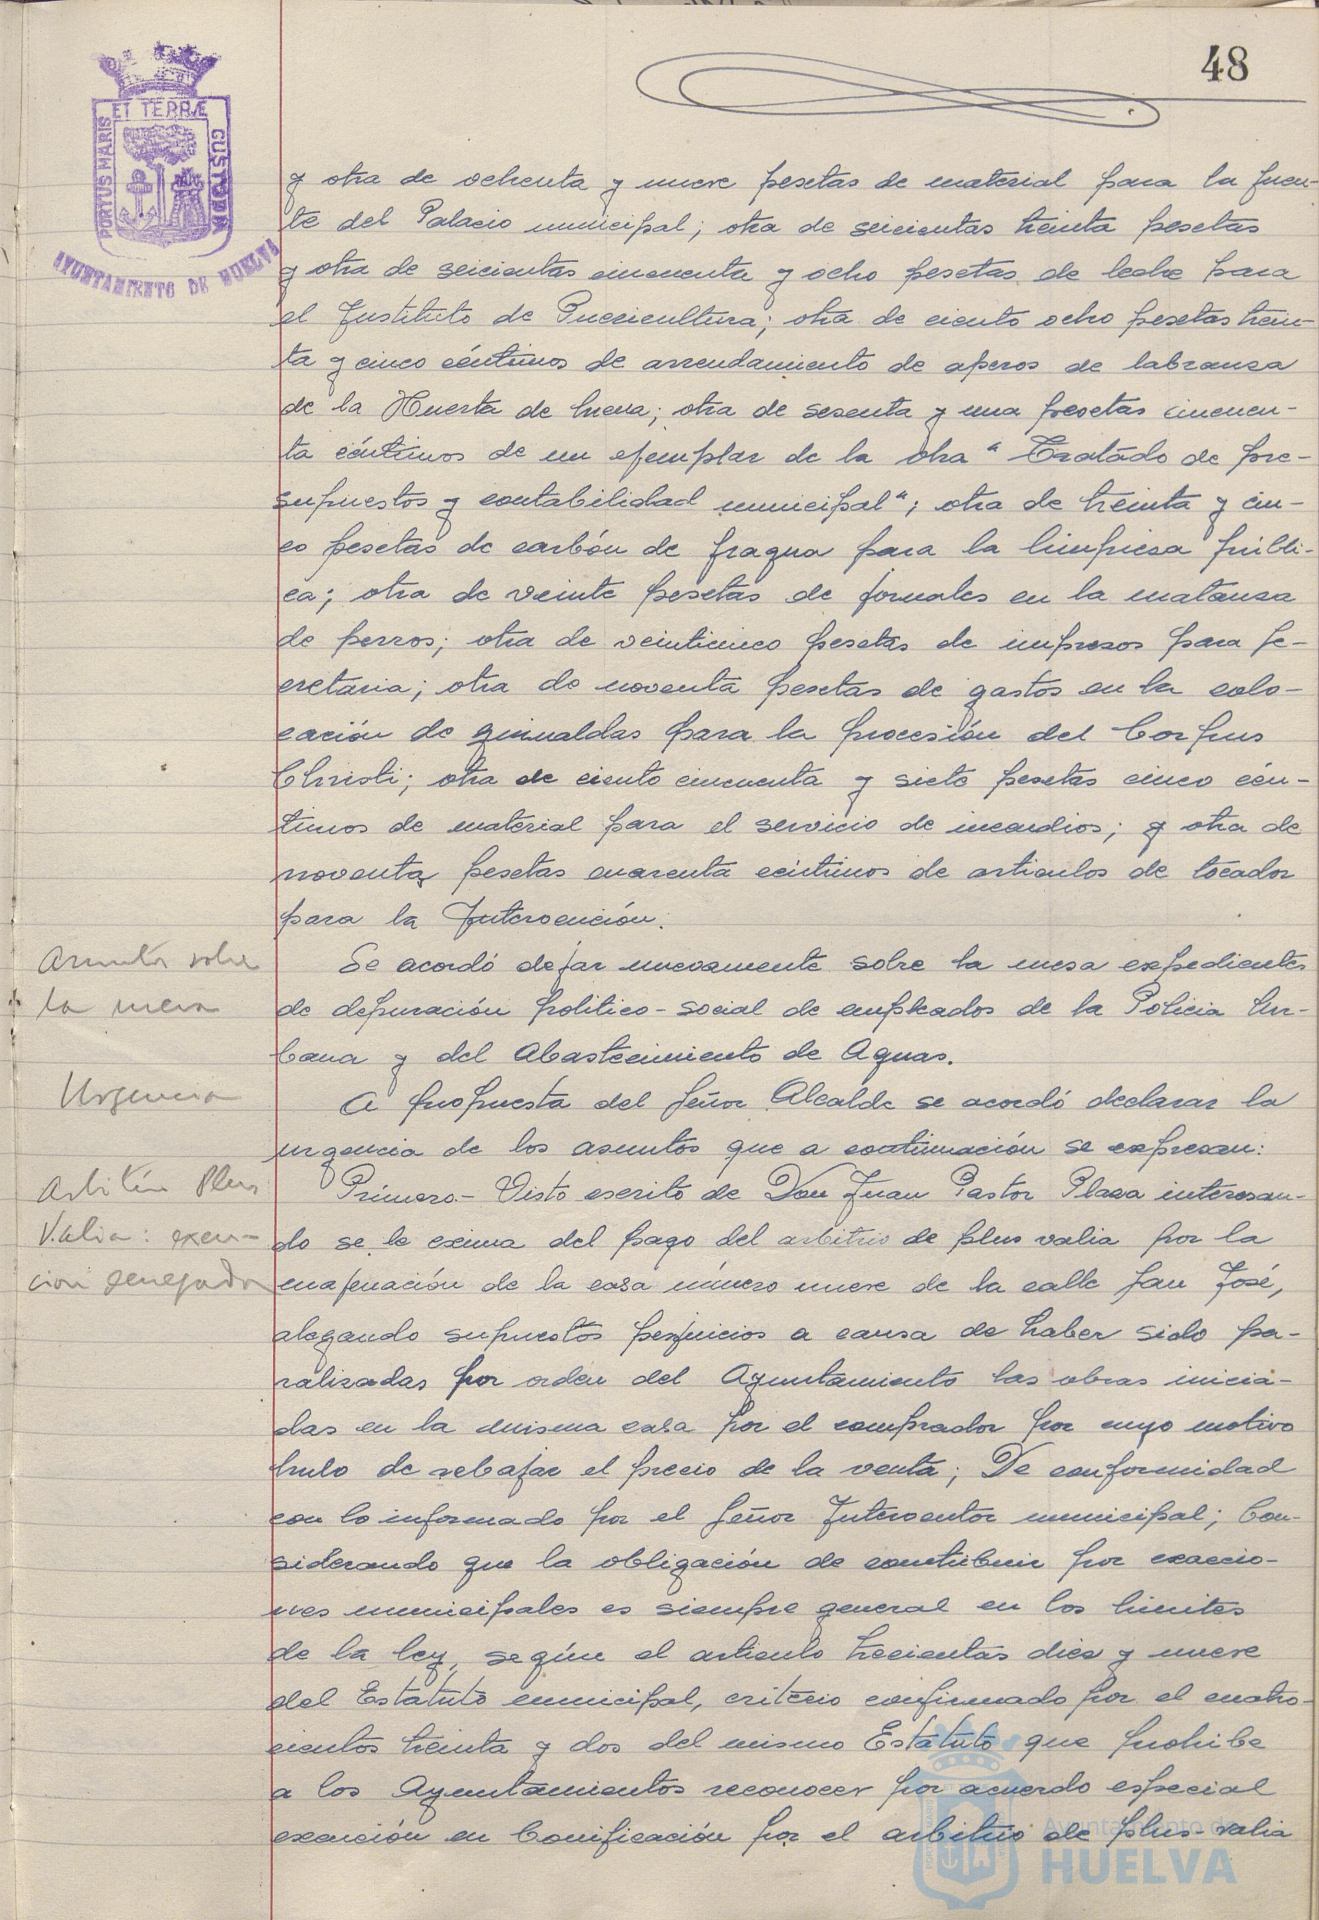 48
ET TERRÆ
PORTUS MARIS
CUSTODIA
AYUNTAMIENTO DE HUELVA
y otra de ochenta y nueve pesetas de material para la fuen-
te del Palacio municipal; otra de seiscientas treinta pesetas
y otra de seicientas cincuenta y ocho pesetas de leche para
el Instituto de Puericultura; otra de ciento ocho pesetas trein-
ta y cinco céntimos de arrendamiento de aperos de labranza
de la Huerta de Mena; otra de sesenta y una pesetas cincuen-
ta céntimos de un ejemplar de la obra "Tratado de pre-
supuestos y contabilidad municipal"; otra de treinta y cin-
co pesetas de carbón de fragua para la limpieza públi-
ca; otra de veinte pesetas de jornales en la matanza
de perros; otra de veinticinco pesetas de impresos para Se-
cretaria; otra de noventa pesetas de gastos en la colo-
cación de guirnaldas para la procesión del Corpus
Christi; otra de ciento cincuenta y siete pesetas cinco cén-
timos de material para el servicio de incendios; y otra de
noventa pesetas cuarenta céntimos de articulos de tocador
para la Intervención.
Asuntos sobre
la mesa
Se acordó dejar nuevamente sobre la mesa expedientes
de depuración politico-social de empleados de la Policia Ur-
bana y del Abastecimiento de Aguas.
Urgencia
A propuesta del Señor Alcalde se acordó declarar la
urgencia de los asuntos que a continuación se expresan:
Arbitrio Plus
Valia: exen-
cion denegada
Primero.- Visto escrito de Don Juan Pastor Plaza interesan-
do se le exima del pago del arbitrio de plus valia por la
enajenación de la casa número nueve de la calle San José,
alegando supuestos perjuicios a causa de haber sido pa-
ralizadas por orden del Ayuntamiento las obras inicia-
das en la misma casa por el comprador por cuyo motivo
hubo de rebajar el precio de la venta; De conformidad
con lo informado por el Señor Interventor municipal; Con-
siderando que la obligación de contribuir por exaccio-
nes municipales es siempre general en los limites
de la ley, según el articulo trecientos diez y nueve
del Estatuto municipal, criterio confirmado por el cuatro-
cientos treinta y dos del mismo Estatuto que prohibe
a los Ayuntamientos reconocer por acuerdo especial
exención en bonificación por el arbitrio de plus-valia
Ayuntamiento de
HUELVA